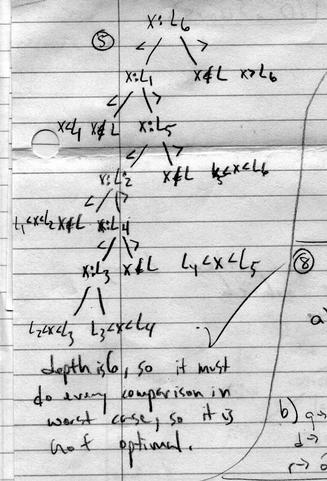 ⑤ x:L₆
< >
x:L₁ x∉L x>L₆
< >
x<L₁ x∉L x:L₅
< >
x:L₂ x∉L L₅<x<L₆
< >
L₁<x<L₂ x∉L x:L₄
< >
x:L₃ x∉L L₄<x<L₅
L₂<x<L₃ L₃<x<L₄
depth is 6, so it must
do every comparison in
worst case, so it is
not optimal.
⑧
a)
b) q→
d→
r→